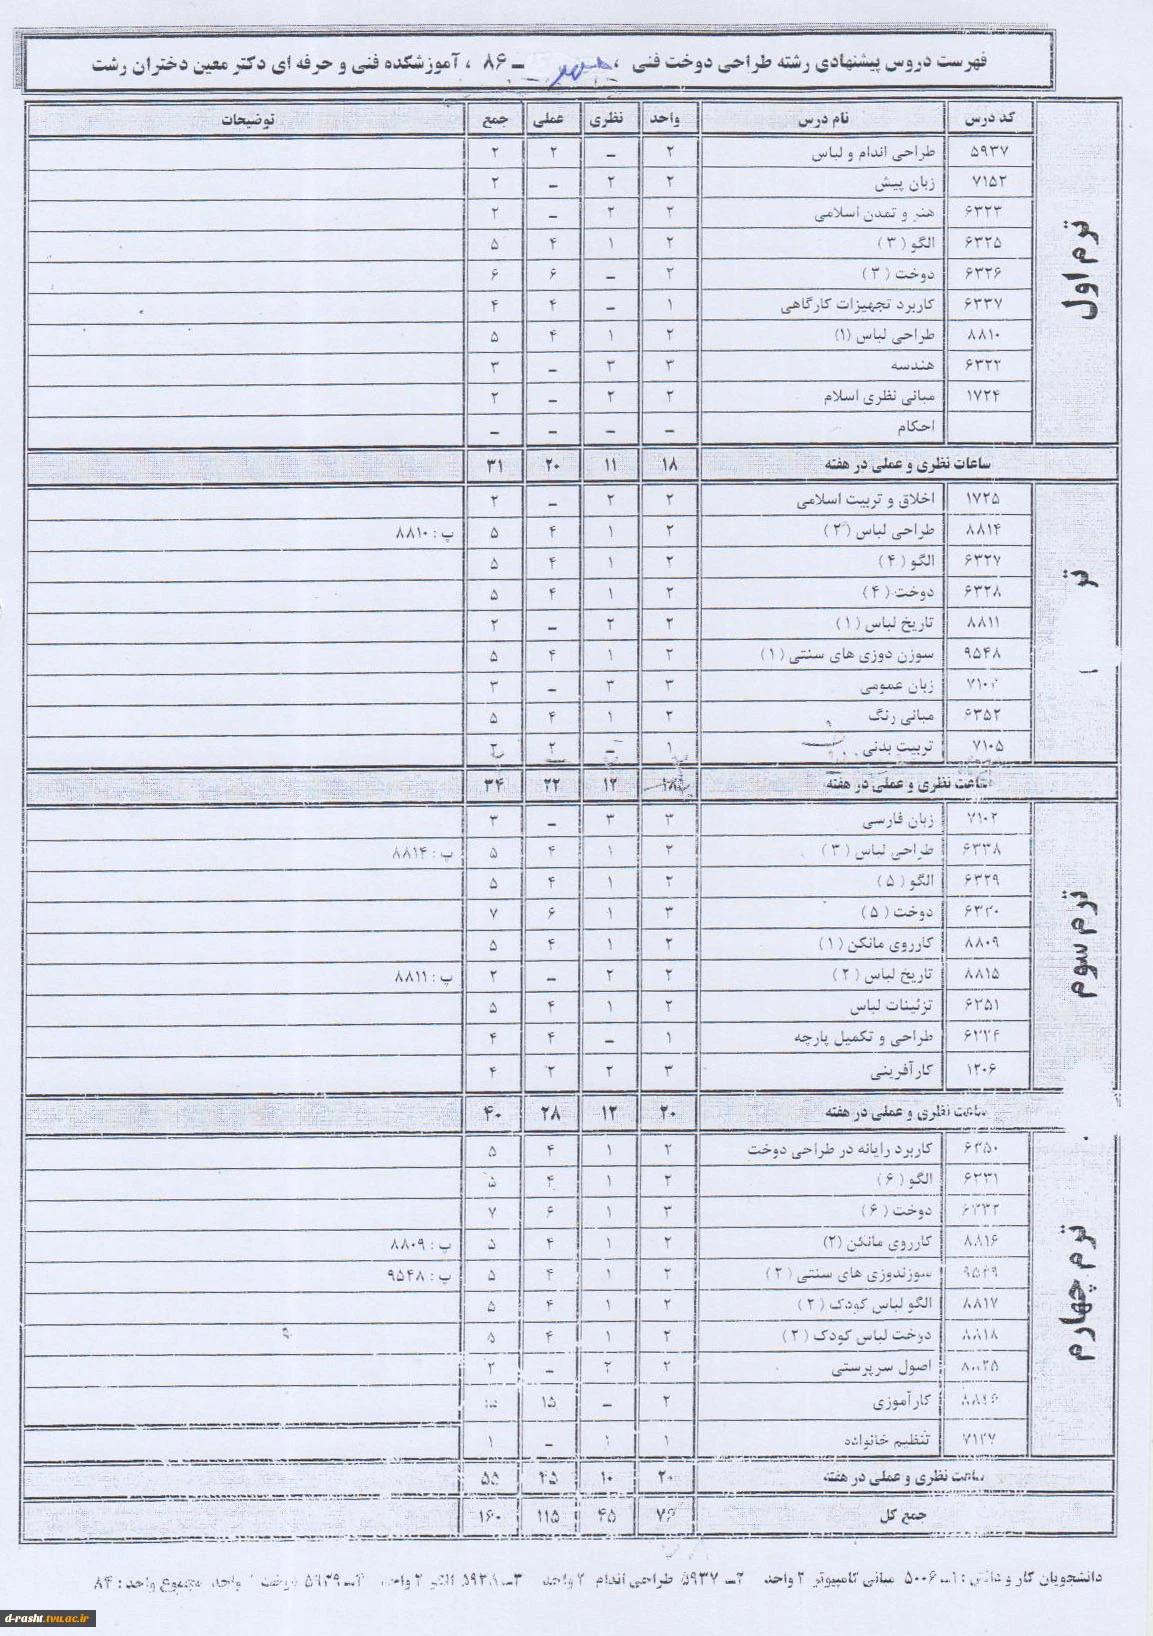 فهرست دروس پیشنهادی رشته طراحی دوخت فنی ، مهر ـ ۸۶ ، آموزشکده فنی و حرفه ای دکتر معین دختران رشت
کد درس نام درس واحد نظری عملی جمع توضیحات
ترم اول
۵۹۳۷ طراحی اندام و لباس ۲ – ۲ ۲
۷۱۵۲ زبان پیش ۲ ۲ – ۲
۶۳۲۳ هنر و تمدن اسلامی ۲ ۲ – ۲
۶۳۲۵ الگو ( ۳ ) ۲ ۱ ۴ ۵
۶۳۲۶ دوخت ( ۳ ) ۲ – ۶ ۶
۶۳۳۷ کاربرد تجهیزات کارگاهی ۱ – ۴ ۴
۸۸۱۰ طراحی لباس (۱) ۲ ۱ ۴ ۵
۶۳۲۲ هندسه ۳ ۳ – ۳
۱۷۲۴ مبانی نظری اسلام ۲ ۲ – ۲
احکام – – – –
ساعات نظری و عملی در هفته ۱۸ ۱۱ ۲۰ ۳۱
تر
۱۷۲۵ اخلاق و تربیت اسلامی ۲ ۲ – ۲
۸۸۱۴ طراحی لباس ( ۲ ) ۲ ۱ ۴ ۵ پ : ۸۸۱۰
۶۳۲۷ الگو ( ۴ ) ۲ ۱ ۴ ۵
۶۳۲۸ دوخت ( ۴ ) ۲ ۱ ۴ ۵
۸۸۱۱ تاریخ لباس ( ۱ ) ۲ ۲ – ۲
۹۵۴۸ سوزن دوزی های سنتی ( ۱ ) ۲ ۱ ۴ ۵
زبان عمومی ۳ ۳ – ۳
۶۳۵۲ مبانی رنگ ۲ ۱ ۴ ۵
۷۱۰۵ تربیت بدنی ۱ – ۲ ۲
ساعت نظری و عملی در هفته ۱۸ ۱۲ ۲۲ ۳۴
ترم سوم
۷۱۰۲ زبان فارسی ۳ ۳ – ۳
۶۳۳۸ طراحی لباس ( ۳ ) ۲ ۱ ۴ ۵ پ : ۸۸۱۴
۶۳۲۹ الگو ( ۵ ) ۲ ۱ ۴ ۵
۶۳۳۰ دوخت ( ۵ ) ۳ ۱ ۶ ۷
۸۸۰۹ کارروی مانکن ( ۱ ) ۲ ۱ ۴ ۵
۸۸۱۵ تاریخ لباس ( ۲ ) ۲ ۲ – ۲ پ : ۸۸۱۱
۶۳۵۱ تزئینات لباس ۲ ۱ ۴ ۵
۶۳۳۴ طراحی و تکمیل پارچه ۱ – ۴ ۴
۱۲۰۶ کارآفرینی ۳ ۲ ۲ ۴
ساعت نظری و عملی در هفته ۲۰ ۱۲ ۲۸ ۴۰
ترم چهارم
۶۳۵۰ کاربرد رایانه در طراحی دوخت ۲ ۱ ۴ ۵
۶۳۳۱ الگو ( ۶ ) ۲ ۱ ۴ ۵
۶۳۳۲ دوخت ( ۶ ) ۳ ۱ ۶ ۷
۸۸۱۶ کارروی مانکن (۲) ۲ ۱ ۴ ۵ پ : ۸۸۰۹
۹۵۴۹ سوزندوزی های سنتی ( ۲ ) ۲ ۱ ۴ ۵ پ : ۹۵۴۸
۸۸۱۷ الگو لباس کودک ( ۲ ) ۲ ۱ ۴ ۵
۸۸۱۸ دوخت لباس کودک ( ۲ ) ۲ ۱ ۴ ۵
اصول سرپرستی ۲ ۲ – ۲
کارآموزی ۲ – ۱۵ ۱۵
۷۱۲۷ تنظیم خانواده ۱ ۱ – ۱
ساعت نظری و عملی در هفته ۲۰ ۱۰ ۴۵ ۵۵
جمع کل ۷۶ ۴۵ ۱۱۵ ۱۶۰
دانشجویان کار و دانش : ۱ـ ۵۰۰۶ مبانی کامپیوتر ۲ واحد ۲ـ ۵۹۳۷ طراحی اندام ۲ واحد ۳ـ ۵۹۳۸ الگو ۲ واحد ۴ـ ۵۹۳۹ دوخت واحد مجموع واحد : ۸۴
d-rasht.tvu.ac.ir